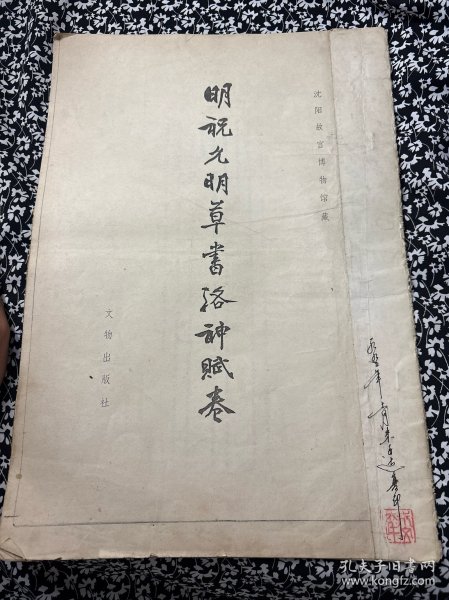 沈阳故宫博物馆藏
明祝允明草書洛神賦卷
文物出版社
孔夫子旧书网
www.kongfz.com